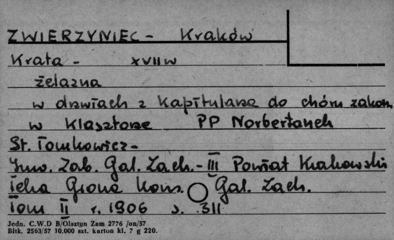 ZWIERZYNIEC - Kraków
Krata - XVII w
żelazna
w drzwiach z Kapitularza do chóru zakon.
w Klasztorze PP Norbertanek
St. Tomkowicz -
Inw. Zab. Gal. Zach. - III Powiat Krakowski
Teka Grona Kons. Gal. Zach.
Tom II r. 1906 s. 311
Jedn. C.W.D B/Olsztyn Zam 2776 /on/57
Bltk. 2563/57 10.000 szt. karton kl. 7 g 220.